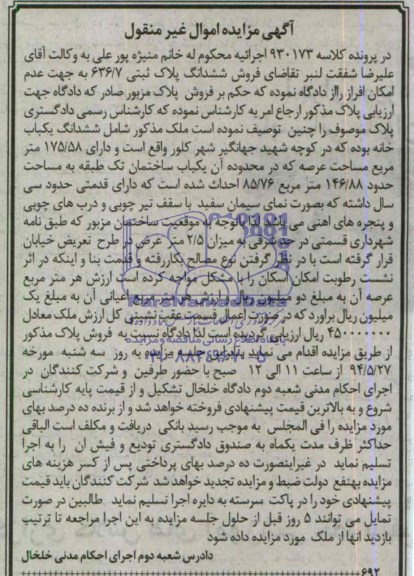 آگهی مزایده اموال غیر منقول
در پرونده کلاسه ۹۳۰۱۷۳ اجرائیه محکوم له خانم منیژه پور علی به وکالت آقای
علیرضا شفقت لنبر تقاضای فروش ششدانگ پلاک ثبتی ۶۳۶/۷ به جهت عدم
امکان افراز رااز دادگاه نموده که حکم بر فروش پلاک مزبور صادر که دادگاه جهت
ارزیابی پلاک مذکور ارجاع امر به کارشناس نموده که کارشناس رسمی دادگستری
پلاک موصوف را چنین توصیف نموده است ملک مذکور شامل ششدانگ یکباب
خانه بوده که در کوچه شهید جهانگیر شهر کلور واقع است و دارای ۱۷۵/۵۸ متر
مربع مساحت عرصه که در محدوده آن یکباب ساختمان تک طبقه به مساحت
حدود ۱۴۶/۸۸ متر مربع ۸۵/۷۶ احداث شده است که دارای قدمتی حدود سی
سال داشته که بصورت نمای سیمان سفید با سقف تیر چوبی و درب های چوبی
و پنجره های اهنی می باشد باتوجه به موقعیت ساختمان مزبور که طبق نامه
شهرداری قسمتی در حد شرقی به میزان ۲/۵ متر عرض در طرح تعریض خیابان
قرار گرفته است با در نظر گرفتن نوع مصالح بکاررفته و قدمت بنا و اینکه در اثر
نشست رطوبت امکان اسکان را با مشکل مواجه کرده است ارزش هر متر مربع
عرصه آن به مبلغ دو میلیون ریال و ارزش هر متر مربع اعیانی آن به مبلغ یک
میلیون ریال براورد که در صورت اعمال قسمت عقب نشینی کل ارزش ملک معادل
۴۵۰۰۰۰۰۰۰ ریال ارزیابی گردیده است لذا دادگاه نسبت به فروش پلاک مذکور
از طریق مزایده اقدام می نماید بنابراین جلسه مزایده به روز سه شنبه مورخه
۹۴/۵/۲۷ از ساعت ۱۱ الی ۱۲ صبح با حضور طرفین و شرکت کنندگان در
اجرای احکام مدنی شعبه دوم دادگاه خلخال تشکیل و از قیمت پایه کارشناسی
شروع و به بالاترین قیمت پیشنهادی فروخته خواهد شد و از برنده ده درصد بهای
مورد مزایده را فی المجلس به موجب رسید بانکی دریافت و مکلف است الباقی
حداکثر ظرف مدت یکماه به صندوق دادگستری تودیع و فیش ان را به اجرا
تسلیم نماید در غیراینصورت ده درصد بهای پرداختی پس از کسر هزینه های
مزایده بهنفع دولت ضبط و مزایده تجدید خواهدشد شرکت کنندگان باید قیمت
پیشنهادی خود را در پاکت سرسته به دایره اجرا تسلیم نماید طالبین در صورت
تمایل می توانند ۵ روز قبل از حلول جلسه مزایده به این اجرا مراجعه تا ترتیب
بازدید انها از ملک مورد مزایده داده شود
دادرس شعبه دوم اجرای احکام مدنی خلخال
۶۹۲